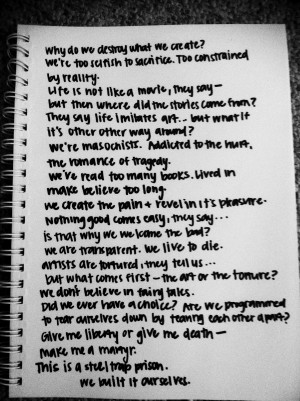 Why do we destroy what we create?
We're too selfish to sacrifice. Too constrained
by reality.
Life is not like a movie, they say —
but then where did the stories come from?
They say life imitates art.. but what if
it's other other way around?
we're masochists. Addicted to the hurt,
the romance of tragedy.
we've read too many books. Lived in
make believe too long.
we create the pain + revel in it's pleasure.
Nothing good comes easy, they say...
is that why we welcome the bad?
we are transparent. we live to die.
artists are tortured, they tell us...
but what comes first - the art or the torture?
we don't believe in fairy tales.
Did we ever have a choice? Are we programmed
to tear ourselves down by tearing each other apart?
Give me liberty or give me death —
make me a martyr.
This is a steel trap prison.
we built it ourselves.